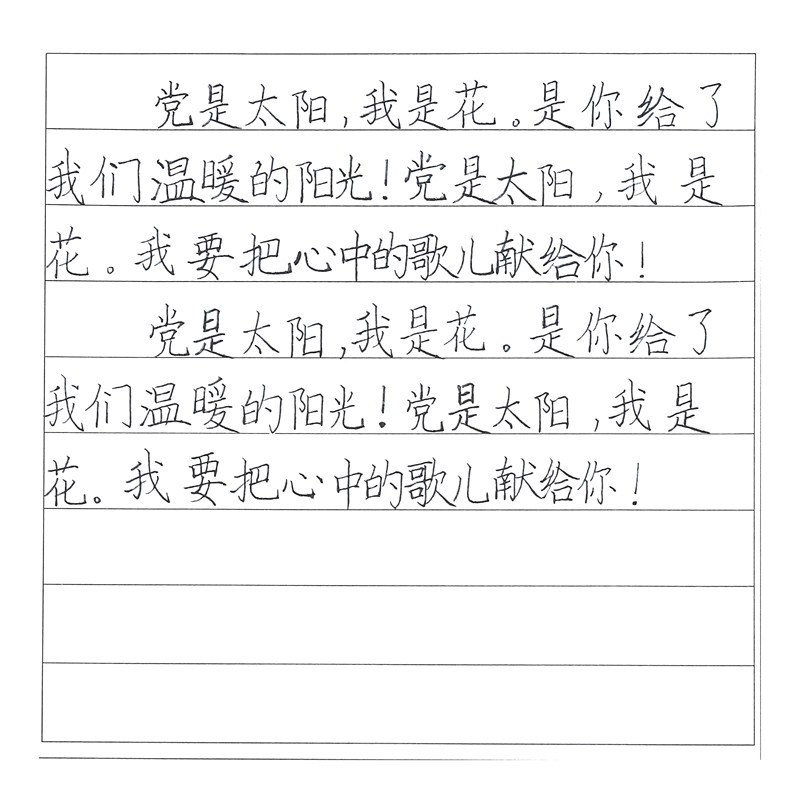 党是太阳，我是花。是你给了
我们温暖的阳光！党是太阳，我是
花。我要把心中的歌儿献给你！
党是太阳，我是花。是你给了
我们温暖的阳光！党是太阳，我是
花。我要把心中的歌儿献给你！